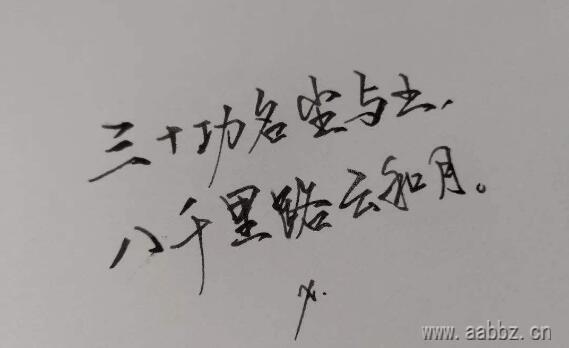 三十功名尘与土，
八千里路云和月。
www.aabbz.cn